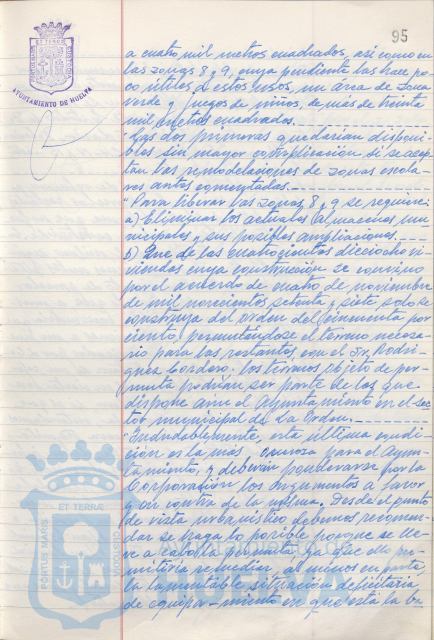 95
AYUNTAMIENTO DE HUELVA
a cuatro mil metros cuadrados, así como en
las zonas 8 y 9, cuya pendiente las hace po-
co útiles a estos usos, un área de zona
verde y juegos de niños, de más de treinta
mil metros cuadrados.
"Las dos primeras quedarían disponi-
bles sin mayor complicación si se acep-
tan las remodelaciones de zonas escola-
res antes comentadas.
"Para liberar las zonas 8 y 9 se requiere:
a) Eliminar los actuales Almacenes mu-
nicipales y sus posibles ampliaciones.
b) Que de las cuatrocientas dieciocho vi-
viendas cuya construcción se convino
por el acuerdo de cuatro de noviembre
de mil novecientos setenta y siete solo se
construya del orden del cincuenta por
ciento, permutándose el terreno necesa-
rio para las restantes con el Sr. Rodrí-
guez Cordero; los terrenos objeto de per-
muta podrían ser parte de los que
dispone aún el Ayuntamiento en el sec-
tor municipal de La Orden.
"Indudablemente, esta última condi-
ción es la más onerosa para el Ayun-
tamiento, y deberán ponderarse por la
Corporación los argumentos a favor
y en contra de la misma. Desde el punto
de vista urbanístico debemos recomen-
dar se haga lo posible porque se lle-
ve a cabo la permuta, ya que ello per-
mitiría remediar, al menos en parte,
la lamentable situación deficitaria
de equipa-miento en que está la ba-
PORTUS MARIS ET TERRÆ CUSTODIA